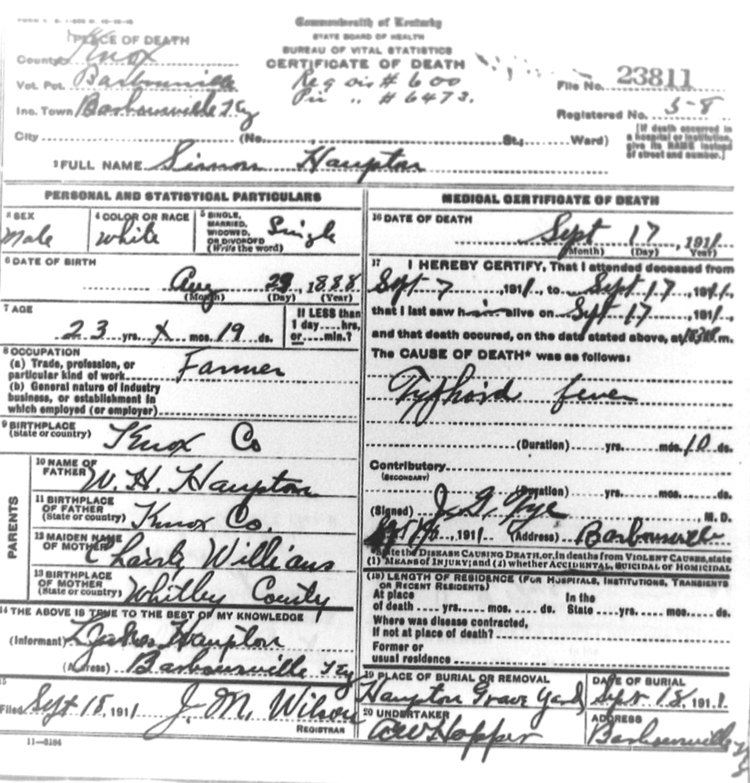 Commonwealth of Kentucky
STATE BOARD OF HEALTH
BUREAU OF VITAL STATISTICS
CERTIFICATE OF DEATH
PLACE OF DEATH
County Knox
Vot. Pct. Barbourville
Inc. Town Barbourville Ky
Reg Dis # 600
Pri " # 6473.
File No. 23811
Registered No. 58
[If death occurred in a hospital or institution, give its NAME instead of street and number.]
City (No. St.; Ward)
2 FULL NAME Simon Hampton
PERSONAL AND STATISTICAL PARTICULARS
3 SEX Male
4 COLOR OR RACE White
5 SINGLE, MARRIED, WIDOWED, OR DIVORCED (Write the word) Single
6 DATE OF BIRTH
Aug 29, 1888
(Month) (Day) (Year)
7 AGE
23 yrs. X mos. 19 ds.
If LESS than 1 day....hrs. or....min.?
8 OCCUPATION
(a) Trade, profession, or particular kind of work Farmer
(b) General nature of industry business, or establishment in which employed (or employer)
9 BIRTHPLACE (State or country) Knox Co
PARENTS
10 NAME OF FATHER W. H. Hampton
11 BIRTHPLACE OF FATHER (State or country) Knox Co.
12 MAIDEN NAME OF MOTHER Williams
13 BIRTHPLACE OF MOTHER (State or country) Whitley County
14 THE ABOVE IS TRUE TO THE BEST OF MY KNOWLEDGE
(Informant) Hampton
(Address) Barbourville Ky
15
Filed Sept 18, 1911 J. M. Wilson
REGISTRAR
11—5184
MEDICAL CERTIFICATE OF DEATH
16 DATE OF DEATH
Sept 17, 1911
(Month) (Day) (Year)
17 I HEREBY CERTIFY, That I attended deceased from
Sept 7, 1911, to Sept 17, 1911,
that I last saw him alive on Sept 17, 1911,
and that death occured, on the date stated above, at m.
The CAUSE OF DEATH* was as follows:
Typhoid fever
(Duration) yrs. mos. 10 ds.
Contributory
(SECONDARY)
(Duration) yrs. mos. ds.
(Signed) J. G. Tye M. D.
, 1911 (Address) Barbourville
*State the DISEASE CAUSING DEATH, or, in deaths from VIOLENT CAUSES, state
(1) MEANS OF INJURY; and (2) whether ACCIDENTAL, SUICIDAL or HOMICIDAL
(18) LENGTH OF RESIDENCE (FOR HOSPITALS, INSTITUTIONS, TRANSIENTS OR RECENT RESIDENTS)
At place of death yrs. mos. ds. In the State yrs. mos. ds.
Where was disease contracted,
if not at place of death?
Former or
usual residence
19 PLACE OF BURIAL OR REMOVAL
Hampton Grave Yard
DATE OF BURIAL
Sept 18, 1911
20 UNDERTAKER
Hopper
ADDRESS
Barbourville